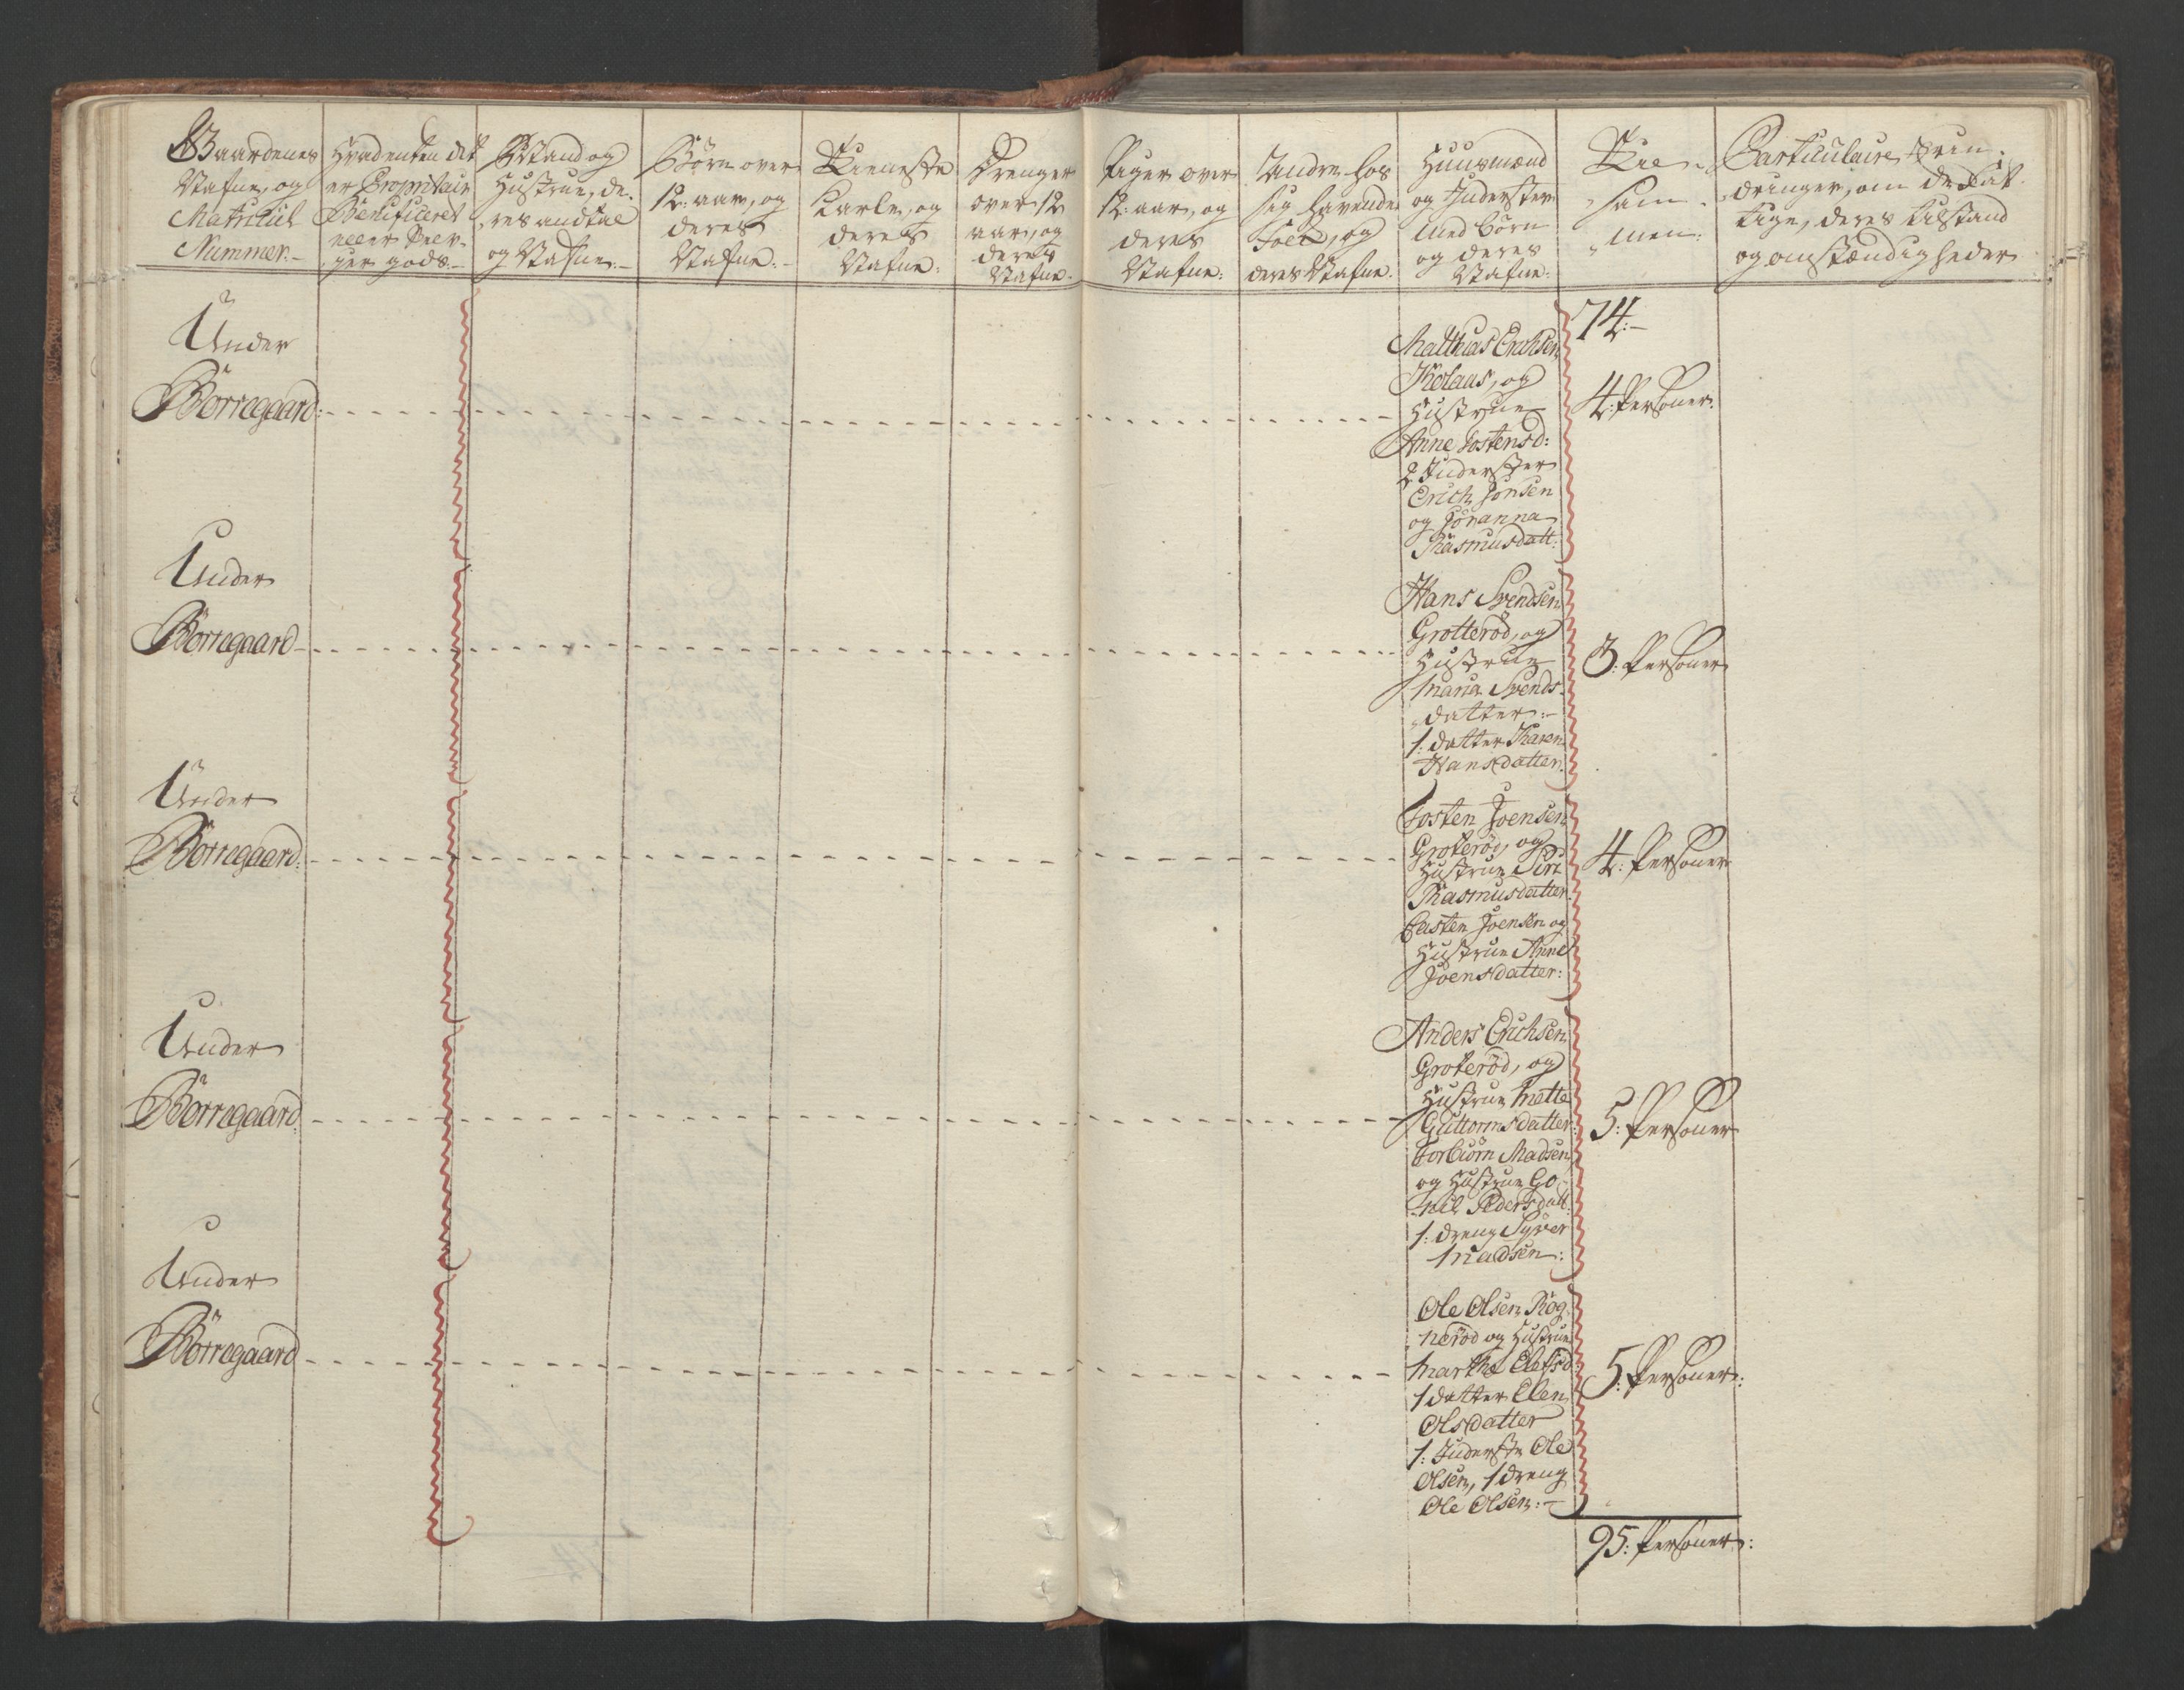 Gaardenes
Nafne, og
Matricul
Nummer.-
Hvadenten det
er Proprietair
Benificeret
eller
gods.-
og
Hustrue, de-
res andtal
og Nafne.-
Børn over
12: aar, og
deres
Nafne.-
Tieneste
Karle, og
deres
Nafne:
Drenger
over 12
aar, og
deres
Nafne.-
Piger over
12: aar, og
deres
Nafne:
Andre hos
sig havende
Folk, og
deres Nafne.
Huusmænd
og Inderster
Med børn
og deres
Nafne:
Til-
sam-
men:
Particulaire Erin-
dringer, om de Fat-
tige, deres tilstand
og omstændigheder
74:-
Under
Börregaard:
Matthias Erichsen
Kolaas, og
Hustrue
Anne Tostensd:
2 Inderster
Erich Jonsen
og Johanna
Rasmusdatt:
4: Personer:
Under
Börregaard-
Hans Svendsen
Grotteröd, og
Hustrue
Maria Svends-
datter:-
1: datter Karen
Hansdatter:
3: Personer
Under
Börregaard:
Tosten Joensen
Groteröd, og
Hustrue Siri
Rasmusdatter
Casten Joensen og
Hustrue Anne
Joensdatter:
4: Personer
Under
Börregaard:
Anders Erichsen
Groteröd, og
Hustrue Mette
Guttormsdatter:
Torbiörn Madsen
og Hustrue Go-
nil Pedersdatt:
1: dreng Syver
Madsen:
5: Personer
Under
Börregaard
Ole Olsen Rög-
neröd og Hustrue
Marthe Elefsd:
1 datter Elen
Olsdatter
1: Inderste Ole
Olsen, 1 dreng
Ole Olsen:-
5: Personer:
95: Personer: